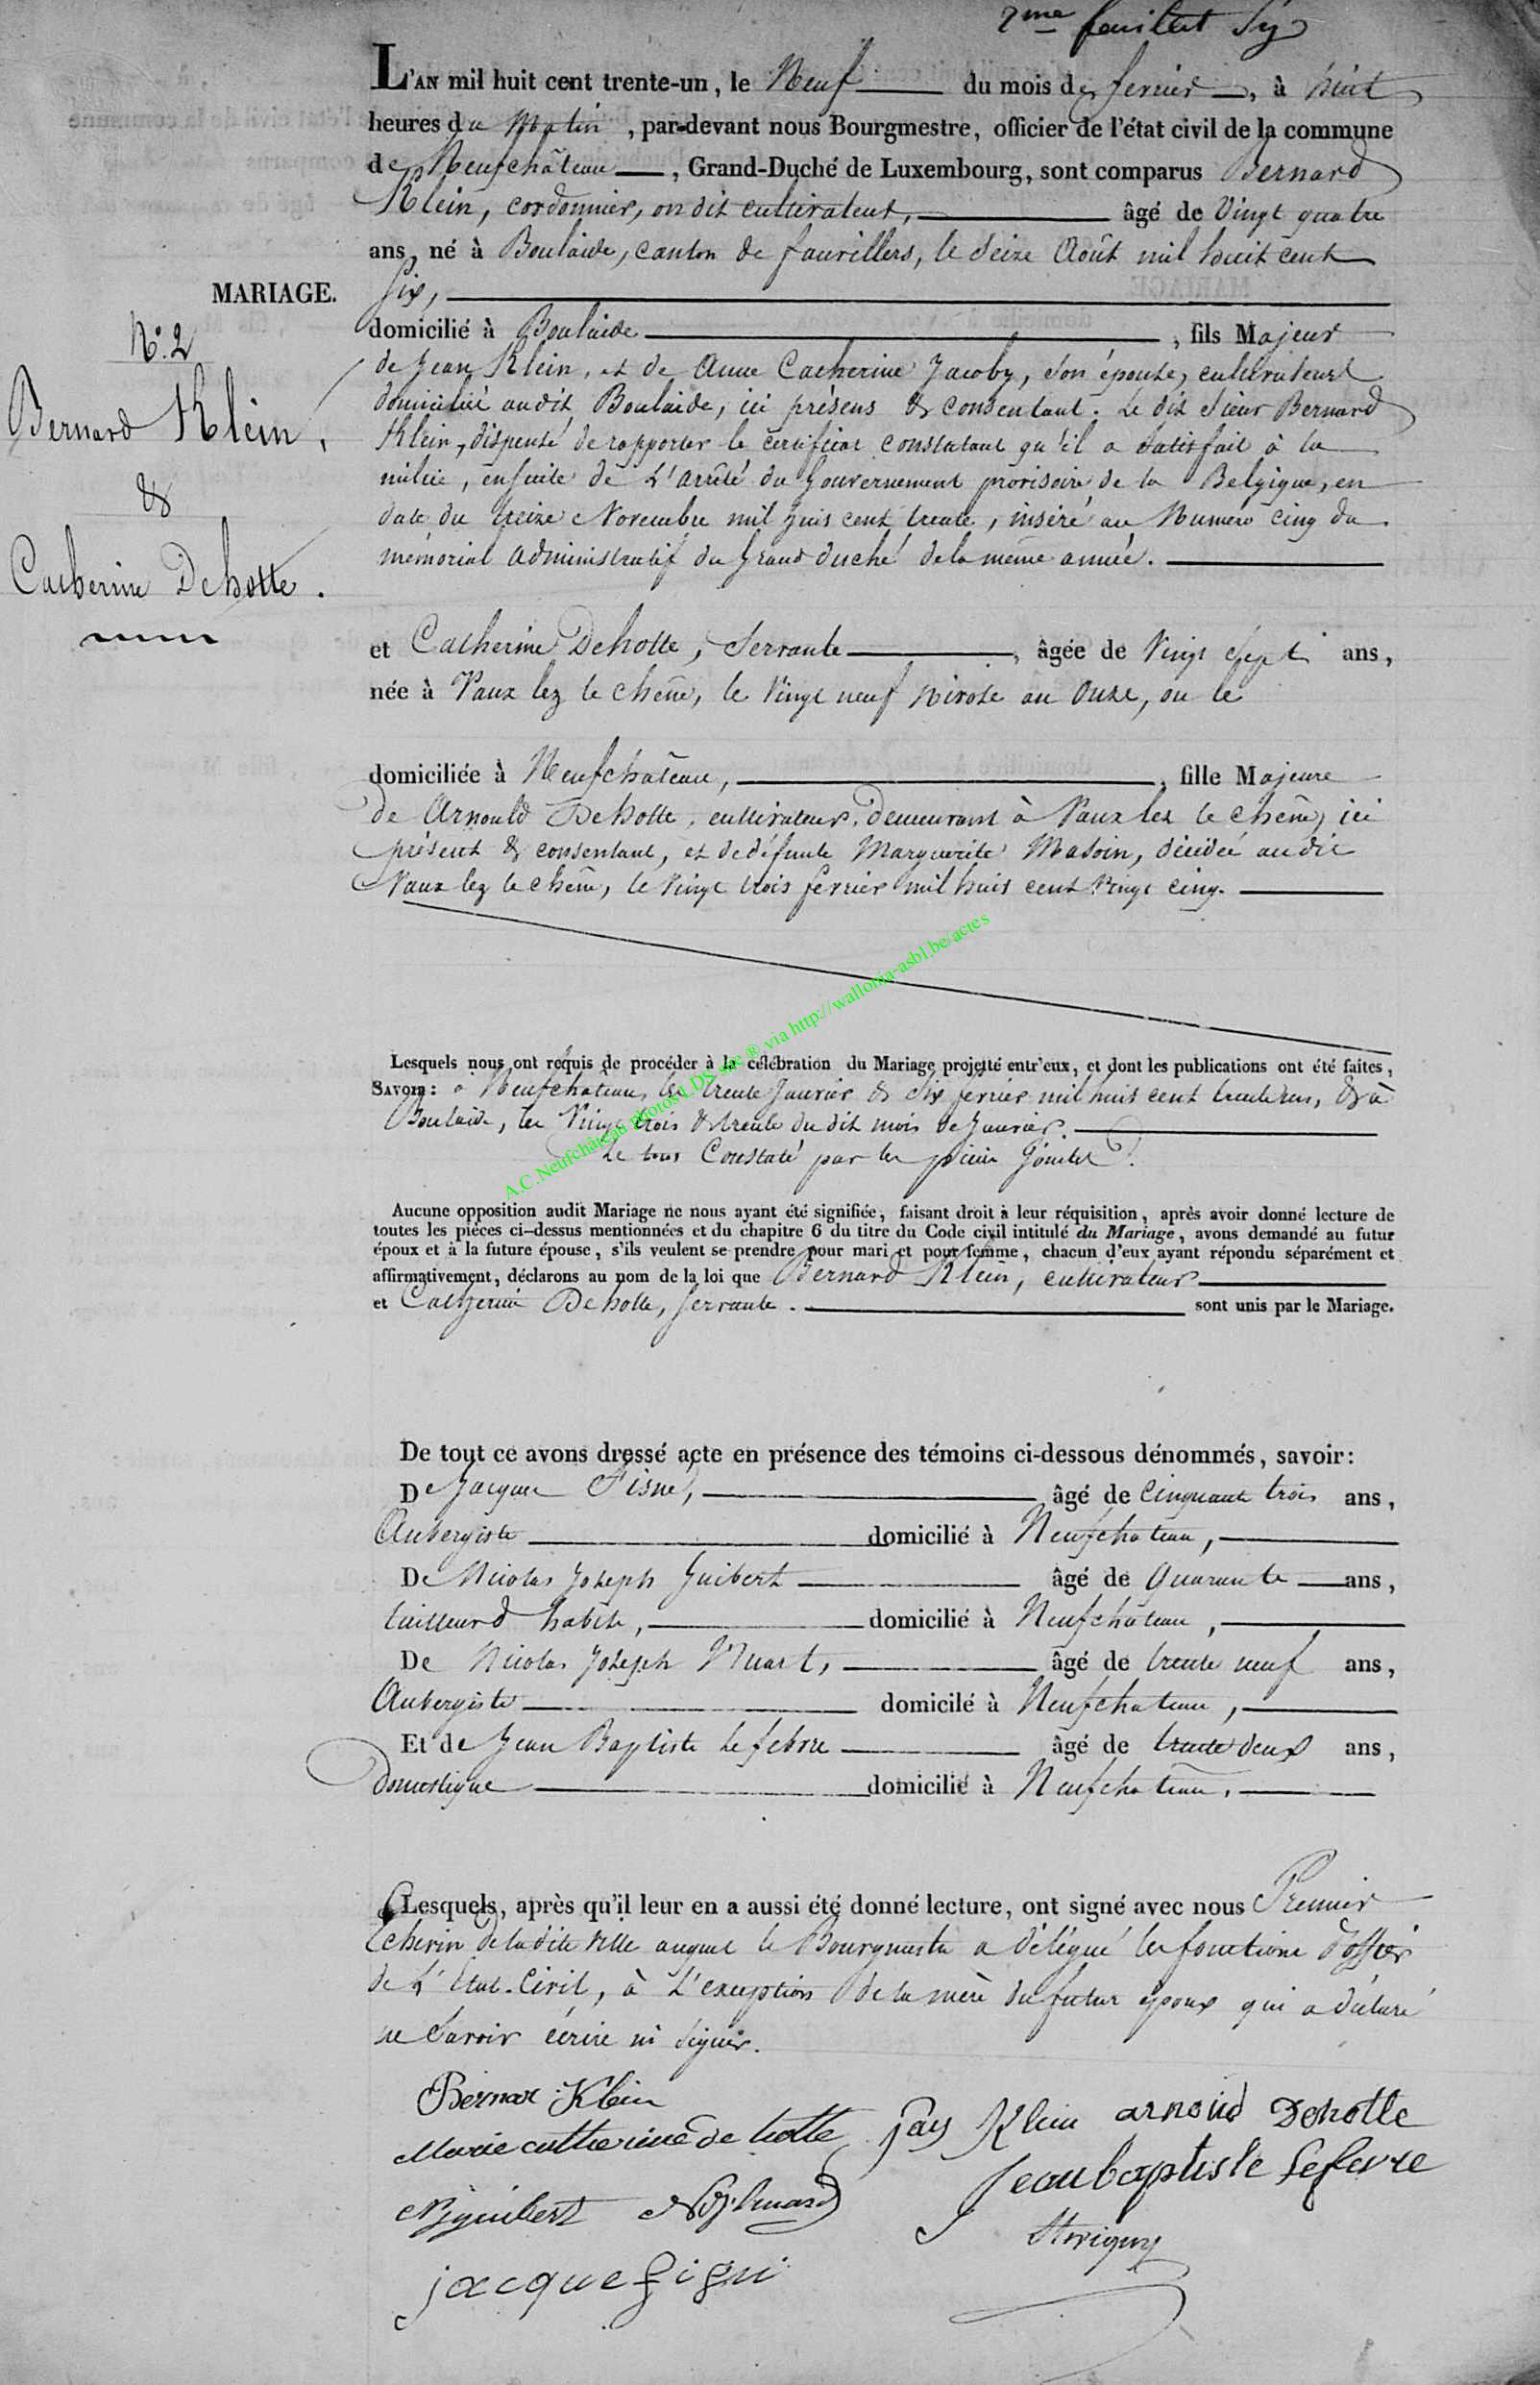 2me feuillet
L'AN mil huit cent trente-un, le Neuf du mois de fevrier, à huit
heures du Matin, par-devant nous Bourgmestre, officier de l'état civil de la commune
de Neufchâteau, Grand-Duché de Luxembourg, sont comparus Bernard
Klein, cordonnier, on dit cultivateur, âgé de Vingt quatre
ans, né à Boulaide, canton de fauvillers, le Seize Août mil huit cent
MARIAGE.
Six,
N.o 2
domicilié à Boulaide, fils Majeur
de Jean Klein, et de Anne Catherine Jacoby, son épouse, cultivateurs
Bernard Klein,
domicilié audit Boulaide, ici présens & consentant. Le dit Sieur Bernard
Klein, dispensé de rapporter le certificat constatant qu'il a Satisfait à la
&
milice, ensuite de L'arrêté du Gouvernement provisoire de la Belgique, en
date du treize Novembre mil huit cent trente, inséré au Numéro cinq du
Catherine Dehotte.
mémorial administratif du Grand duché de la même année.
et Catherine Dehotte, Servante, âgée de Vingt Sept ans,
née à Vaux lez le chêne, le Vingt neuf Nivose an Onze, ou le
domiciliée à Neufchâteau, fille Majeure
de Arnould Dehotte, cultivateur, Demeurant à Vaux lez le chêne, ici
présent & consentant, et de défunte Marguerite Masoin, décédée audit
Vaux lez le chêne, le Vingt trois fevrier mil huit cent Vingt cinq.
Lesquels nous ont requis de procéder à la célébration du Mariage projetté entr'eux, et dont les publications ont été faites,
SAVOIR: à Neufchateau, les trente Janvier & Six fevrier mil huit cent trente un, & à
Boulaide, les Vingt trois & trente du dit mois de Janvier.
Le tout Constaté par les pièces
A.C.Neufchâteau photos LDS sie ® via http://wallonia-asbl.be/actes
Aucune opposition audit Mariage ne nous ayant été signifiée, faisant droit à leur réquisition, après avoir donné lecture de
toutes les pièces ci-dessus mentionnées et du chapitre 6 du titre du Code civil intitulé du Mariage, avons demandé au futur
époux et à la future épouse, s'ils veulent se prendre pour mari et pour femme, chacun d'eux ayant répondu séparément et
affirmativement, déclarons au nom de la loi que Bernard Klein, cultivateur
et Catherine Dehotte, Servante. sont unis par le Mariage.
De tout ce avons dressé acte en présence des témoins ci-dessous dénommés, savoir:
De Jacques, âgé de Cinquante trois ans,
Aubergiste domicilié à Neufchateau,
De Nicolas Joseph Guibert âgé de Quarante ans,
tailleur d'habits, domicilié à Neufchâteau,
De Nicolas Joseph, âgé de trente neuf ans,
Aubergiste domicilé à Neufchateau,
Et de Jean Baptiste Lefebvre âgé de trente deux ans,
Domestique domicilié à Neufchateau.
Lesquels, après qu'il leur en a aussi été donné lecture, ont signé avec nous Premier
Echevin de ladite Ville auquel le Bourgmestre a délégué les fonctions d'officier
de L'Etat-Civil, à L'exception de la mère du futur époux qui a déclaré
ne Savoir écrire ni Signer.
Bernar Klein
Marie catherine de hotte Klein arnould Dehotte
Jean baptiste Lefevre
NJguibert
jacque